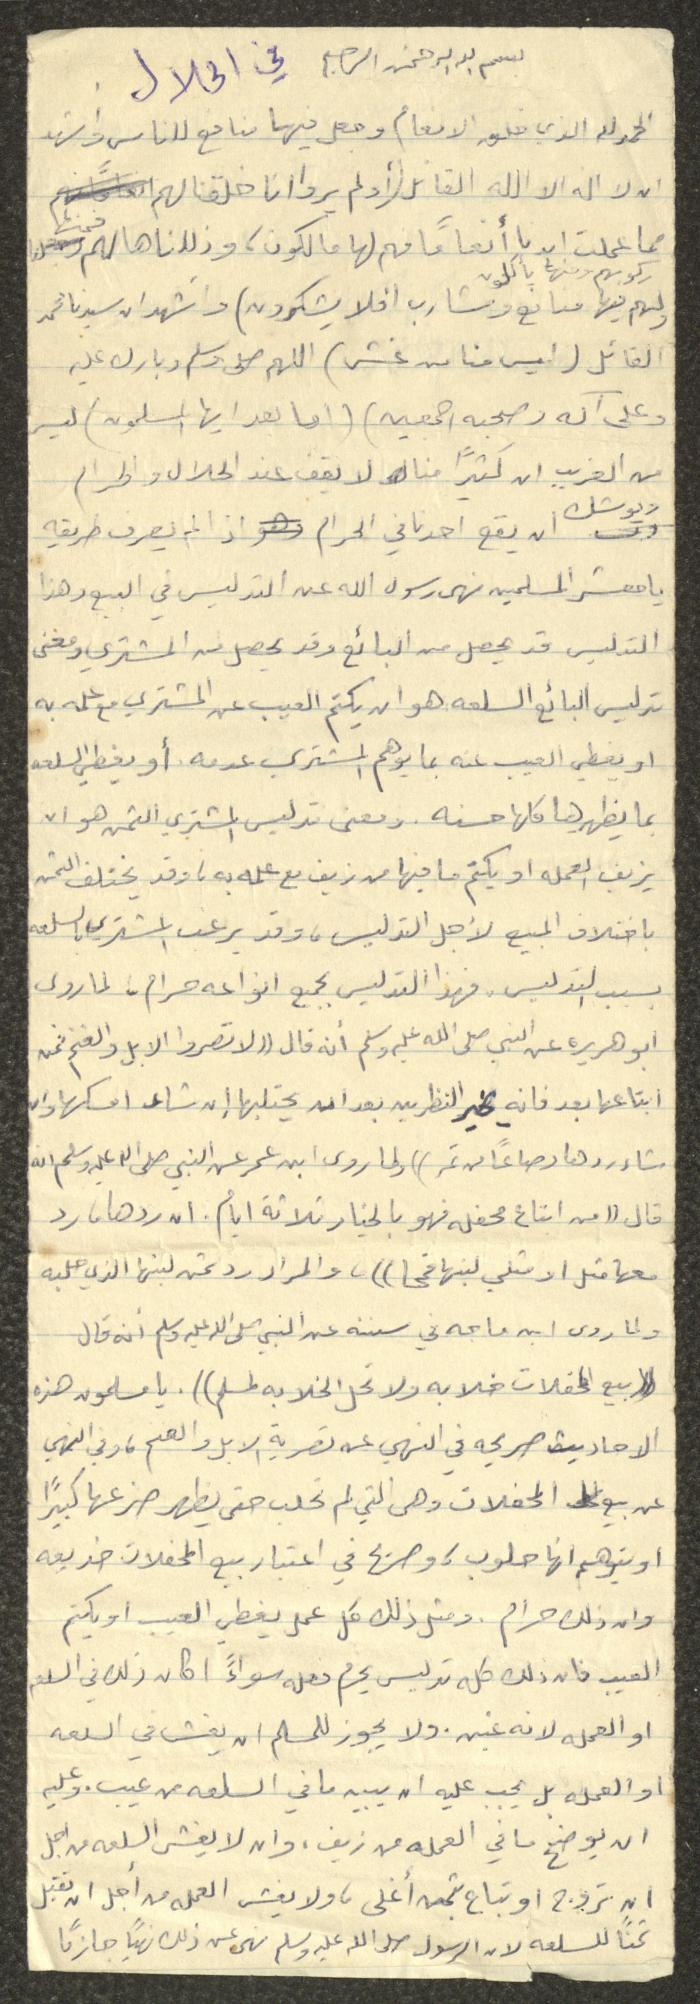 بسم الله الرحمن الرحيم في الحلال
الحمد لله الذي خلق الانعام وجعل فيها منافع للناس وأشهد
ان لا اله الا الله القائل (أولم يروا انا خلقنا لهم
مما عملت ايدينا أنعامًا فهم لها مالكون، وذللناها لهم فمنها
ركوبهم ومنها يأكلون
ولهم فيها منافع ومشارب افلا يشكرون) وأشهد ان سيدنا محمد
القائل (ليس منا من غش) اللهم صلى وسلم وبارك عليه
وعلى آله وصحبه اجمعين) (اما بعد ايها المسلمون) ليس
من الغريب ان كثيرًا منا لا يقف عند الحلال والحرام
ويوشك أن يقع احدنا في الحرام اذا لم يعرف طريقه
يا معشر المسلمين نهى رسول الله عن التدليس في البيع وهذا
التدليس قد يحصل من البائع وقد يحصل من المشتري ومعنى
تدليس البائع السلعه هو ان يكتم العيب عن المشتري مع علمه به
او يغطي العيب عنه بما يوهم المشتري عدمه. أو يغطي السلعه
بما يظهرها كلها حسنه. ومعنى تدليس المشتري الثمن هو ان
يزيف العمله او يكتم ما فيها من زيف مع علمه به، وقد يختلف الثمن
باختلاف المبيع لأجل التدليس، وقد يرغب المشتري بالسلعه
بسبب التدليس. فهذا التدليس بجميع انواعه حرام، لما روى
ابو هريره عن النبي صلى الله عليه وسلم أنه قال ((لا تصروا الابل والغنم فمن
ابتاعها بعد فانه بخير النظرين بعد ان يحتلبها إن شاء امسكها وان
شاء ردها وصاعًا من تمر)) ولما روى ابن عمر عن النبي صلى الله عليه وسلم انه
قال ((من ابتاع محفله فهو بالخيار ثلاثة ايام. ان ردها، رد
معها مثل او مثلي لبنها قمحا))، والمراد رد ثمن لبنها الذي حلبه
ولما روى ابن ماجه في سننه عن النبي صلى الله عليه وسلم أنه قال
((بيع المحفلات خلابه ولا تحل الخلابه لمسلم)). يا مسلمون هذه
الاحاديث صريحه في النهي عن تصرية الابل والغنم، وفي النهي
عن بيع المحفلات وهي التي لم تحلب حتى يظهر ضرعها كبيرًا
او يتوهم انها حلوب، وصريح في اعتبار بيع المحفلات خديعه
وان ذلك حرام. ومثل ذلك كل عمل يغطي العيب او يكتم
العيب فان ذلك كله تدليس يحرم فعله سواءً اكان ذلك في السلعه
او العمله لانه غبن. ولا يجوز للمسلم ان يغش في السلعه
او العمله بل يجب عليه ان يبين ما في السلعه من عيب. وعليه
ان يوضح ما في العمله من زيف، وان لا يغش السلعه من اجل
ان تروج او تباع بثمن أغلى، ولا يغش العمله من أجل ان تقبل
ثمنًا للسلعه لان الرسول صلى الله عليه وسلم نهى عن ذلك نهيًا جازمًا